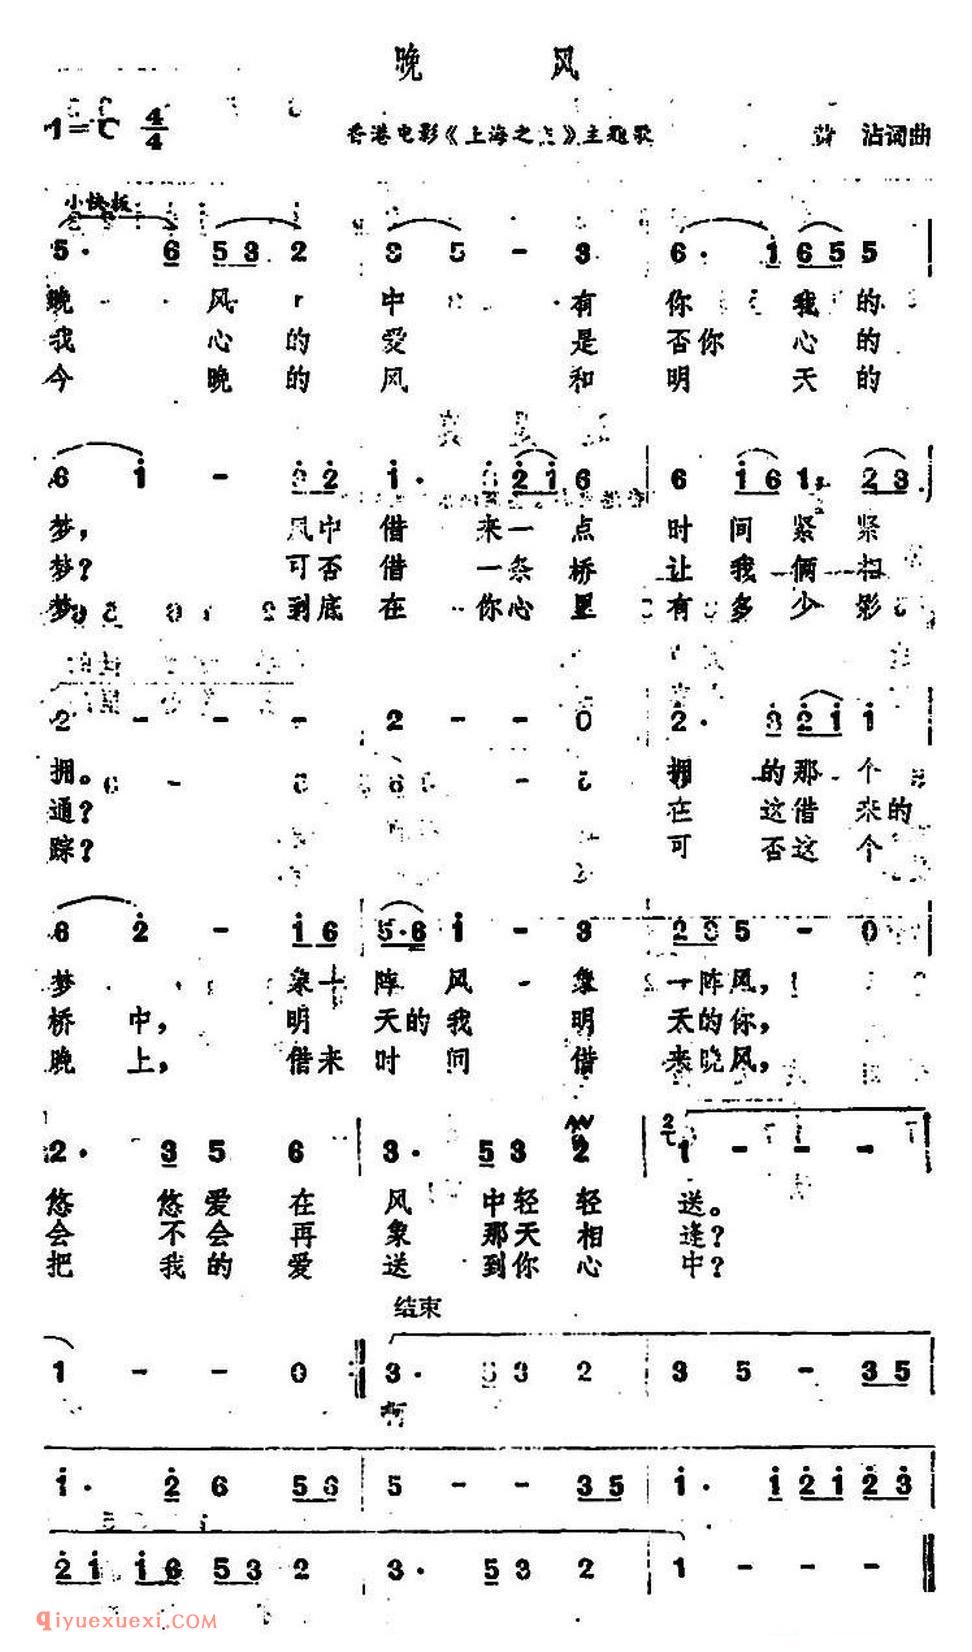 晚 风
1=C 4/4 香港电影《上海之 》主题歌 沾词曲
小快板
5· 6 5 3 2 3 5 - 3 6· 1 6 5 5
晚 风 中 有 你 我 的
我 心 的 爱 是 否 你 心 的
今 晚 的 风 和 明 天 的
6 1 - 2 2 1· 2 1 6 6 1 6 1 2 3
梦， 风中 借 来 一 点 时 间 紧 紧
梦？ 可否 借 一 条 桥 让 我 俩 相
梦， 到底 在 你 心 里 有 多 少 影
2 - - - 2 - - 0 2· 3 2 1 1
拥。 拥 的 那 个
通？ 在 这 借 来 的
踪？ 可 否 这 个
6 2 - 1 6 5·6 1 - 3 2 3 5 - 0
梦 象 一 阵 风 象 一 阵 风，
桥 中， 明 天 的 我 明 天 的 你，
晚 上， 借 来 时 间 借 来 晚 风，
2· 3 5 6 3· 5 3 2 1 - - -
悠 悠 爱 在 风 中 轻 轻 送。
会 不 会 再 象 那 天 相 逢？
把 我 的 爱 送 到 你 心 中？
结束
1 - - 0 3· 5 3 2 3 5 - 3 5
啊
1· 2 6 5 6 5 - - 3 5 1· 1 2 1 2 3
2 1 1 6 5 3 2 3· 5 3 2 1 - - -
qiyuexuexi.com